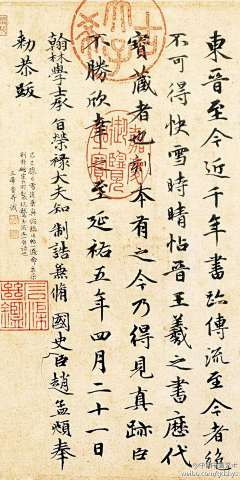 東晉至今近千年書跡傳流至今者絕
不可得快雪時晴帖晉王羲之書歷代
寶藏者也刻本有之今乃得見真跡臣
不勝欣幸之至延祐五年四月二十一日
翰林學士承旨榮祿大夫知制誥兼脩國史臣趙孟頫奉
勑恭跋
古希天子
嘉慶御覽之寶